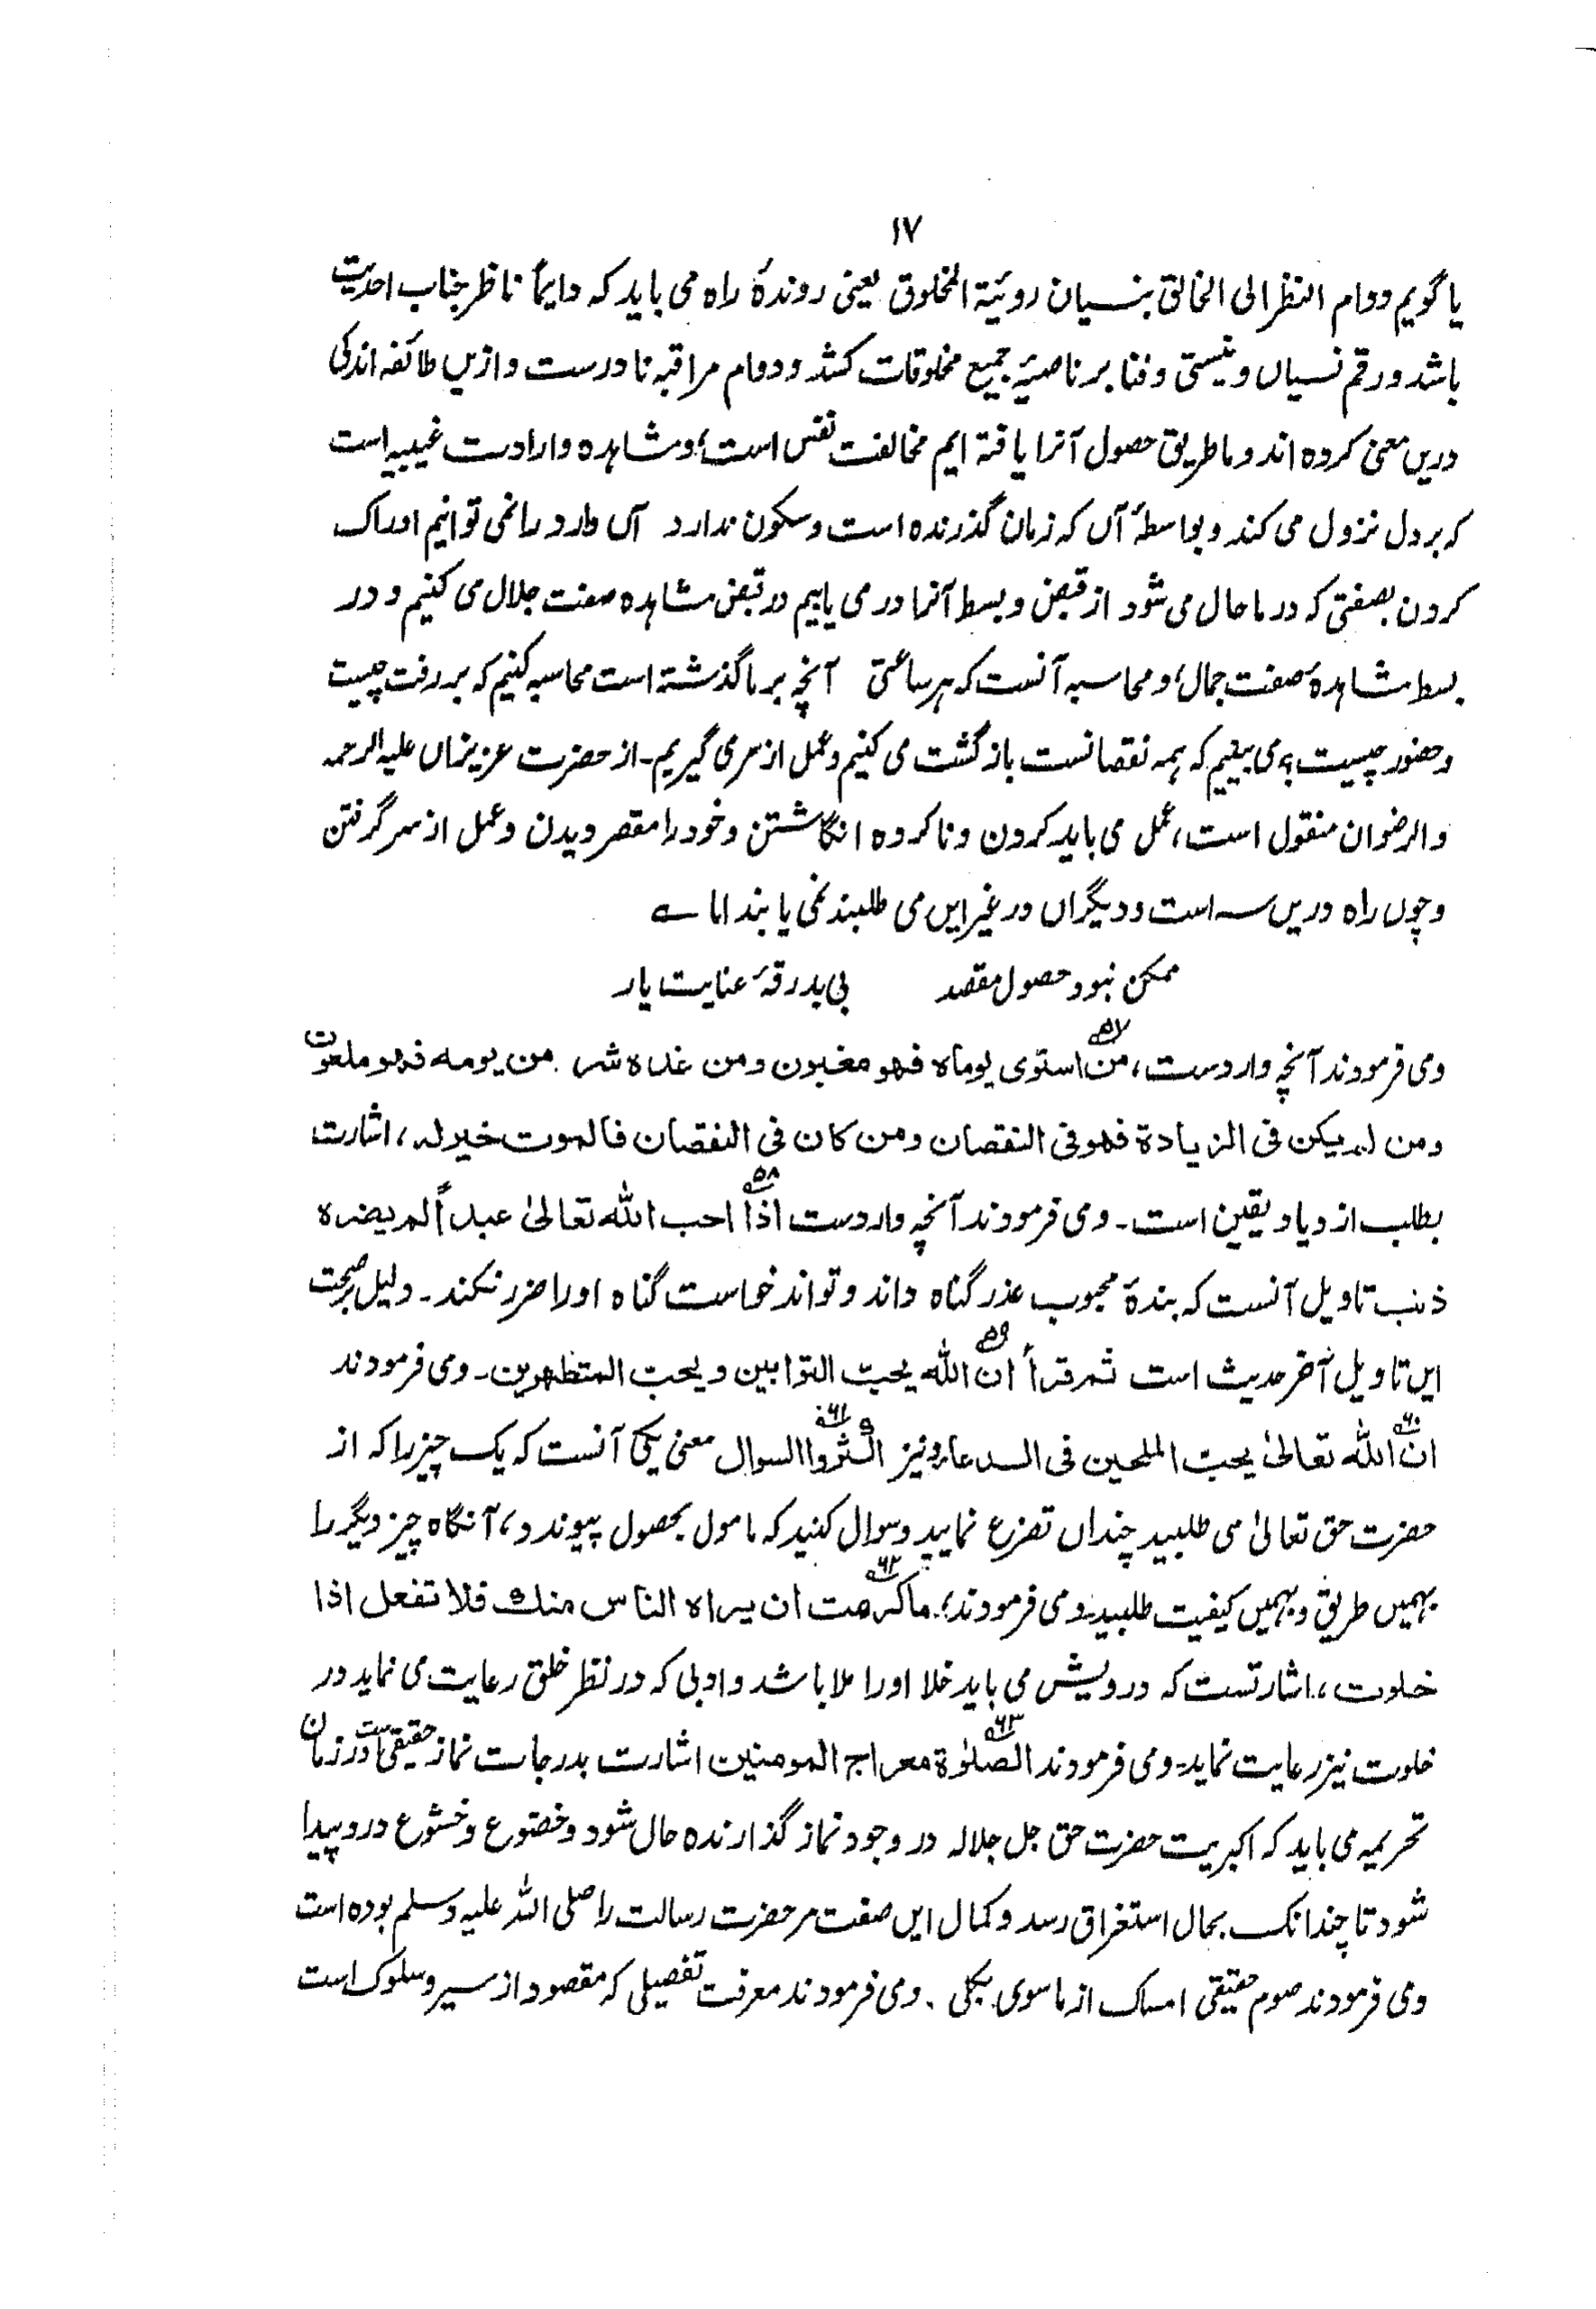 ۱۷
یا گویم دوام النظر الی الخالق بنسیان روئیة المخلوق یعنی روندۂ راہ می باید کہ دایماً ناظر جناب احدیت
باشد و رقم نسیاں و نیستی و فنا بر ناصیۂ جمیع مخلوقات کشد و دوام مراقبہ نادرست و ازیں طائفہ اندکی
دریں معنی کردہ اند و ما طریق حصول آنرا یافتہ ایم مخالفت نفس است، و مشاہدہ واردات غیبیہ است
کہ بر دل نزول می کند و بواسطۂ آں کہ زمان گذرندہ است و سکون ندارد آں وارد را نمی توانیم ادراک
کردن بصفتی کہ در ما حال می شود از قبض و بسط آنرا در می یابیم در قبض مشاہدہ صفت جلال می کنیم و در
بسط مشاہدۂ صفت جمال، و محاسبہ آنست کہ ہر ساعتی آنچہ بر ما گذشتہ است محاسبہ کنیم کہ بر رفت چیست
و حضور چیست، می بینیم کہ ہمہ نقصانست بازگشت می کنیم و عمل از سر می گیریم۔ از حضرت عزیزاں علیہ الرحمہ
و الرضوان منقول است، عمل می باید کردن و ناکردہ انگاشتن و خود را مقصر دیدن و عمل از سر گرفتن
و چوں راہ دریں سہ است و دیگراں در غیر ایں می طلبند نمی یابند اما ؎
ممکن نبود حصول مقصد بی بدرقۂ عنایت یار
و می فرمودند آنچہ واردست، من ۵۷ استوی یوماه فهو مغبون و من غداه شر من یومه فهو ملعون
و من لم یکن فی الزیادة فهو فی النقصان و من کان فی النقصان فالموت خیر له، اشارت
بطلب ازدیاد یقین است۔ و می فرمودند آنچہ واردست اذا ۵۸ احب الله تعالیٰ عبداً لم یضره
ذنب تاویل آنست کہ بندۂ محبوب عذر گناہ داند و تواند خواست گناہ او را ضرر نکند۔ دلیل بر صحت
ایں تاویل آخر حدیث است ثم قرأ ان ۵۹ الله یحب التوابین و یحب المتطهرین۔ و می فرمودند
ان ۶۰ الله تعالیٰ یحب الملحین فی الدعاء و نیز اکثروا ۶۱ السوال معنی یکی آنست کہ یک چیز را کہ از
حضرت حق تعالیٰ می طلبید چنداں تضرع نمایید و سوال کنید کہ مامول بحصول پیوندد، آنگاہ چیز دیگر را
بہمیں طریق و بہمیں کیفیت طلبید۔ و می فرمودند، ما ۶۲ کرهت ان یراه الناس منك فلا تفعل اذا
خلوت، اشارتست کہ درویش می باید خلا او را ملا باشد و ادبی کہ در نظر خلق رعایت می نماید در
خلوت نیز رعایت نماید۔ و می فرمودند الصلوٰة ۶۳ معراج المومنین اشارت بدرجات نماز حقیقی است در زمان
تحریمہ می باید کہ اکبریت حضرت حق جل جلالہ در وجود نماز گذارندہ حال شود و خضوع و خشوع درو پیدا
شود تا چندانک بحال استغراق رسد و کمال ایں صفت مر حضرت رسالت را صلی اللہ علیہ وسلم بودہ است
و می فرمودند صوم حقیقی امساک از ماسوی بکلی ۔ و می فرمودند معرفت تفصیلی کہ مقصود از سیر و سلوک است